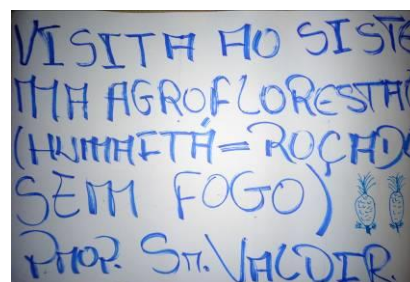 VISITA AO SISTE
MA AGROFLORESTA
(HUMAITÁ=ROÇADO
SEM FOGO)
PROP. SR. VALDIR.